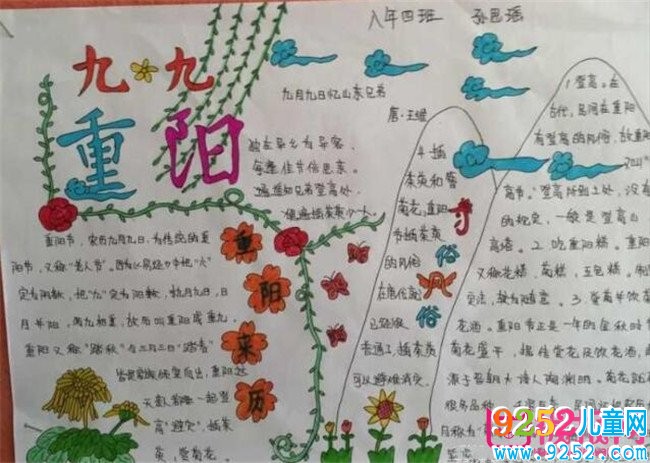 八年四班 孙邑瑶
九九
重阳
九月九日忆山东兄弟
唐·王维
独在异乡为异客
每逢佳节倍思亲
遥知兄弟登高处
遍插茱萸少一人
重阳节，农历九月九日，为传统的重
阳节，又称"老人节"。因为《易经》中把"六"
定为阴数，把"九"定为阳数，九月九日，日
月并阳，两九相重，故而叫重阳或重九。
重阳又称"踏秋"与三月三日"踏春"
皆是家族倾室而出，重阳这
天 登
高"避灾"，插茱
萸、赏菊花。
重阳来历
4. 插
茱萸和簪
菊花，重阳
节插茱萸
的风俗
在唐代就
已经很
普遍了，插茱萸
可以避难消灾。
节俗风俗
1. 登高。在
古代，民间在重阳
有登高的风俗，故重阳
高节"。登高所到之处，没有
的规定，一般是登高山
高塔。2. 吃重阳糕。重阳
又称花糕，菊糕，五色糕。制
定法，较为随意。3. 赏菊并饮菊
花酒。重阳节正是一年的金秋时节
菊花盛开，据传赏花及饮花酒，
源于晋朝大诗人陶渊明。
很多品种
9252儿童网
www.9252.com